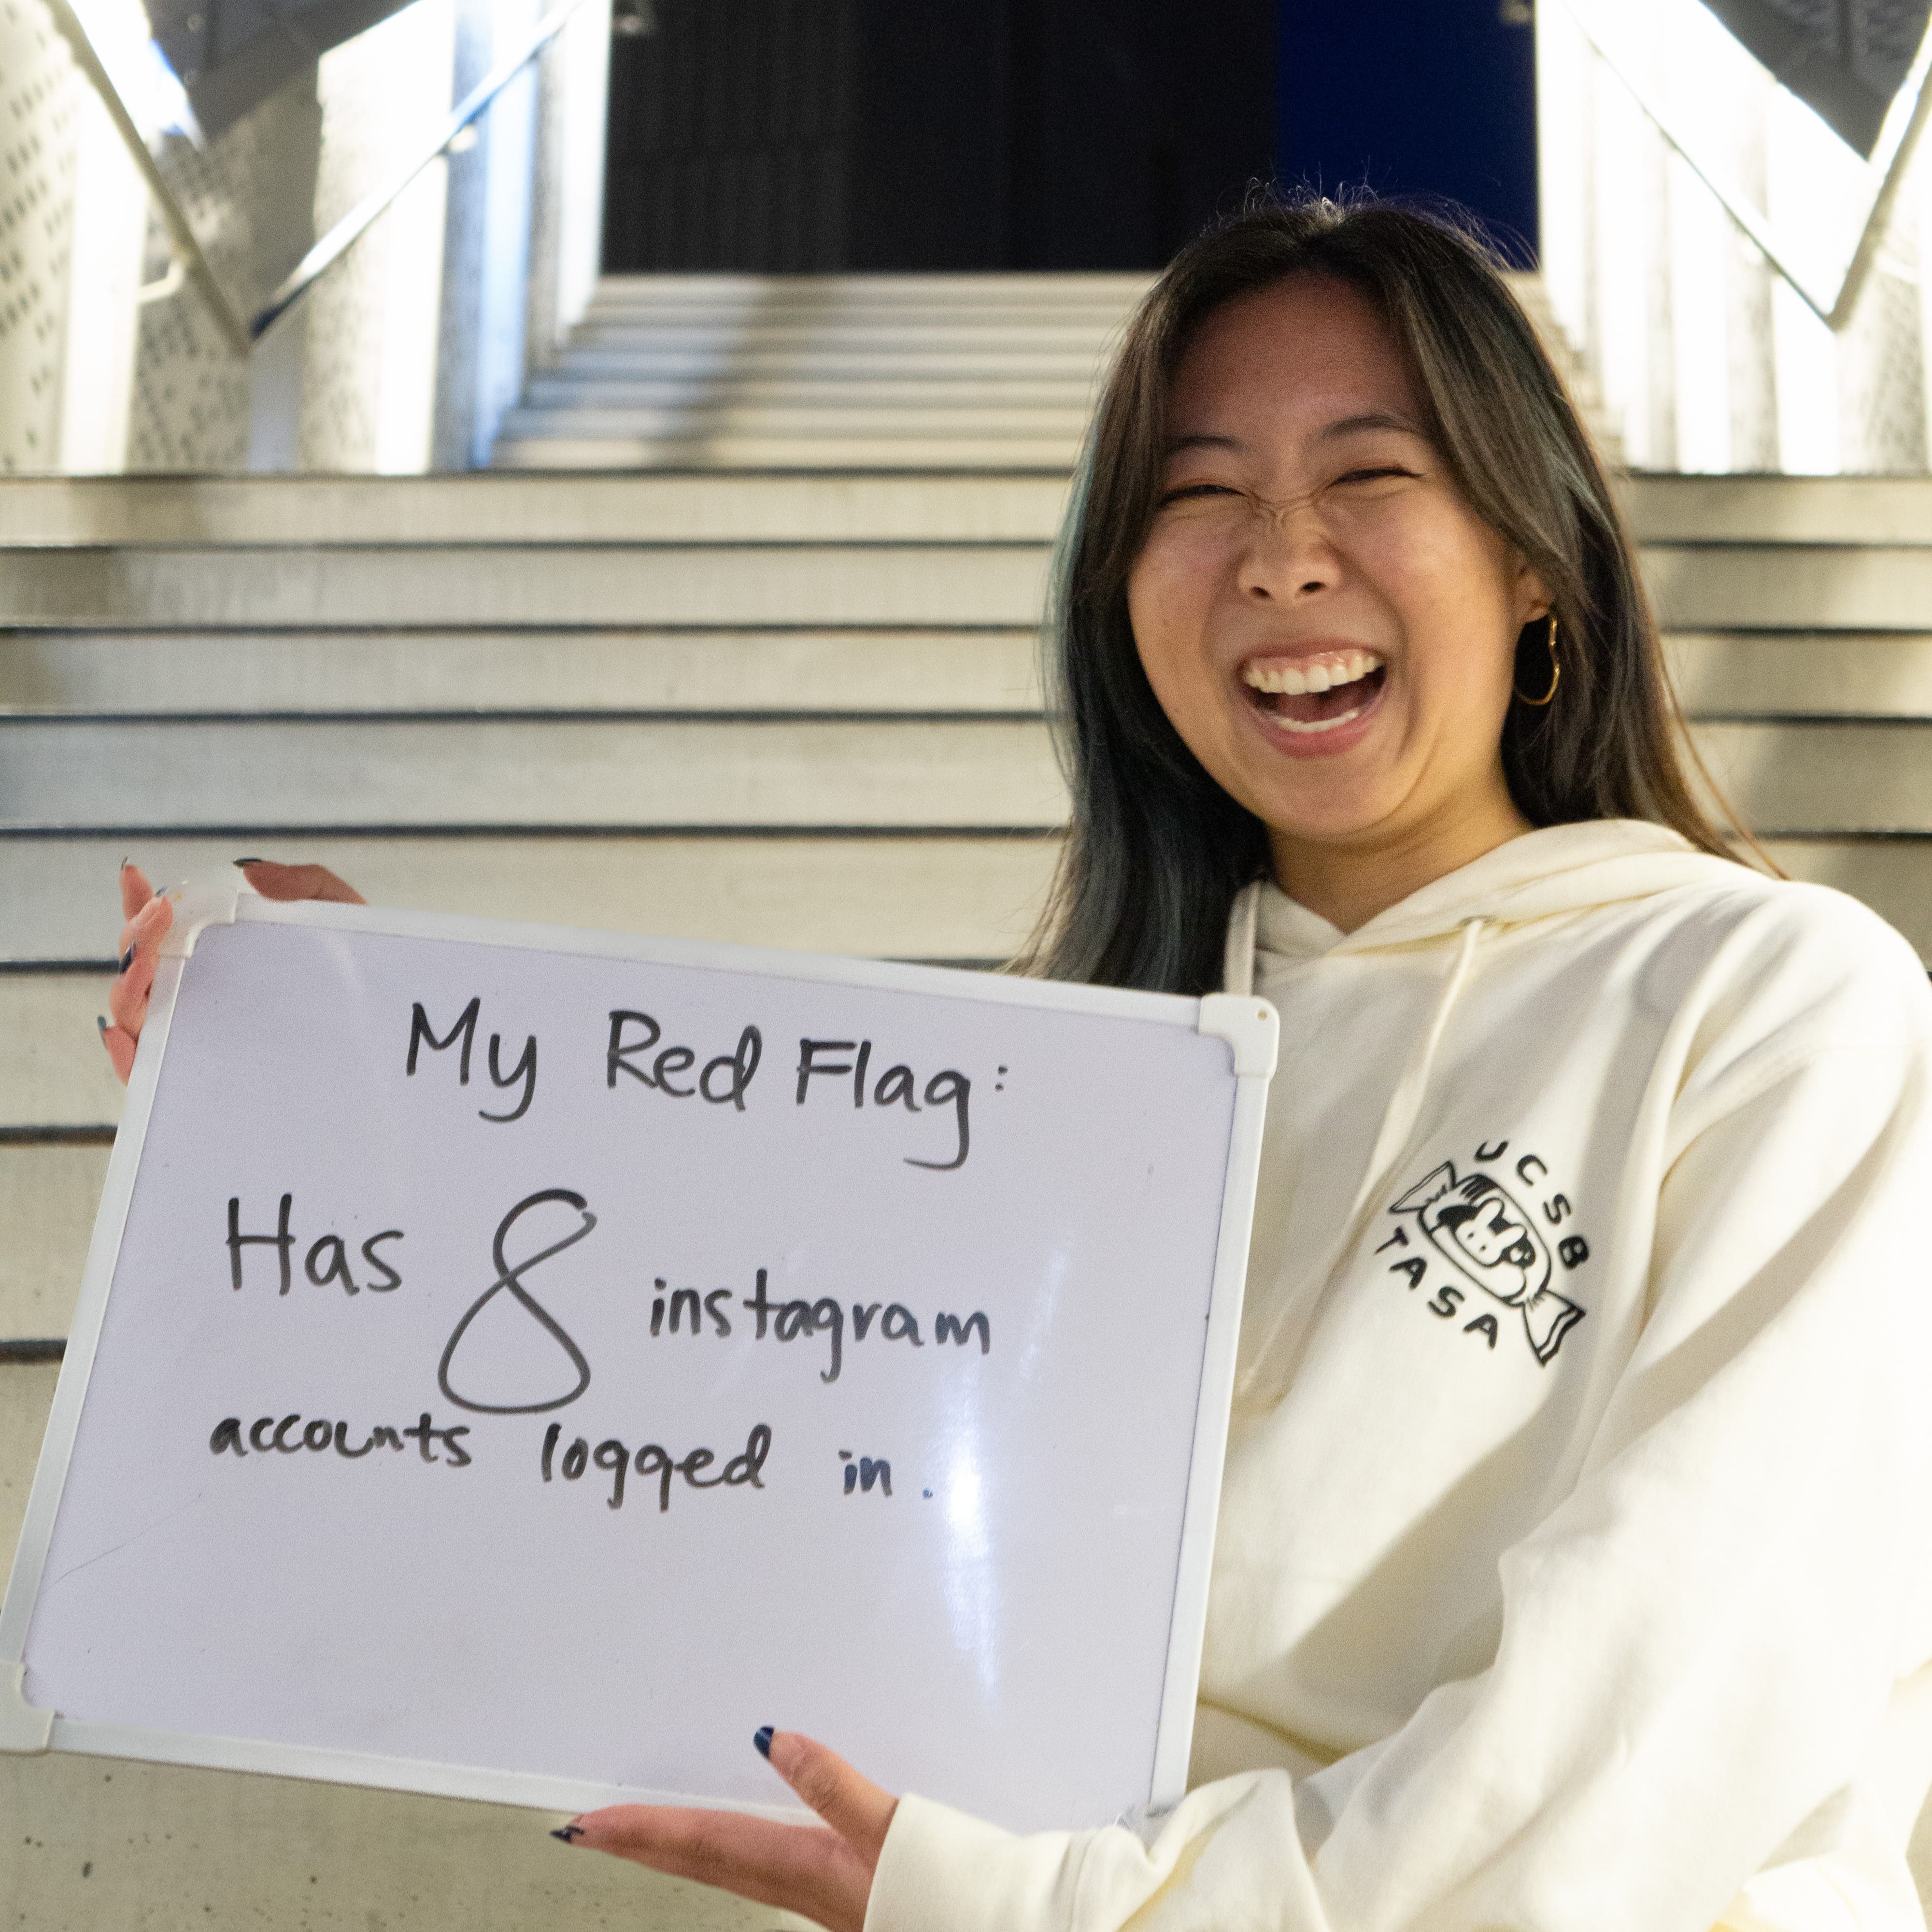 My Red Flag:
Has 8 instagram
accounts logged in.
UCSB
TASA